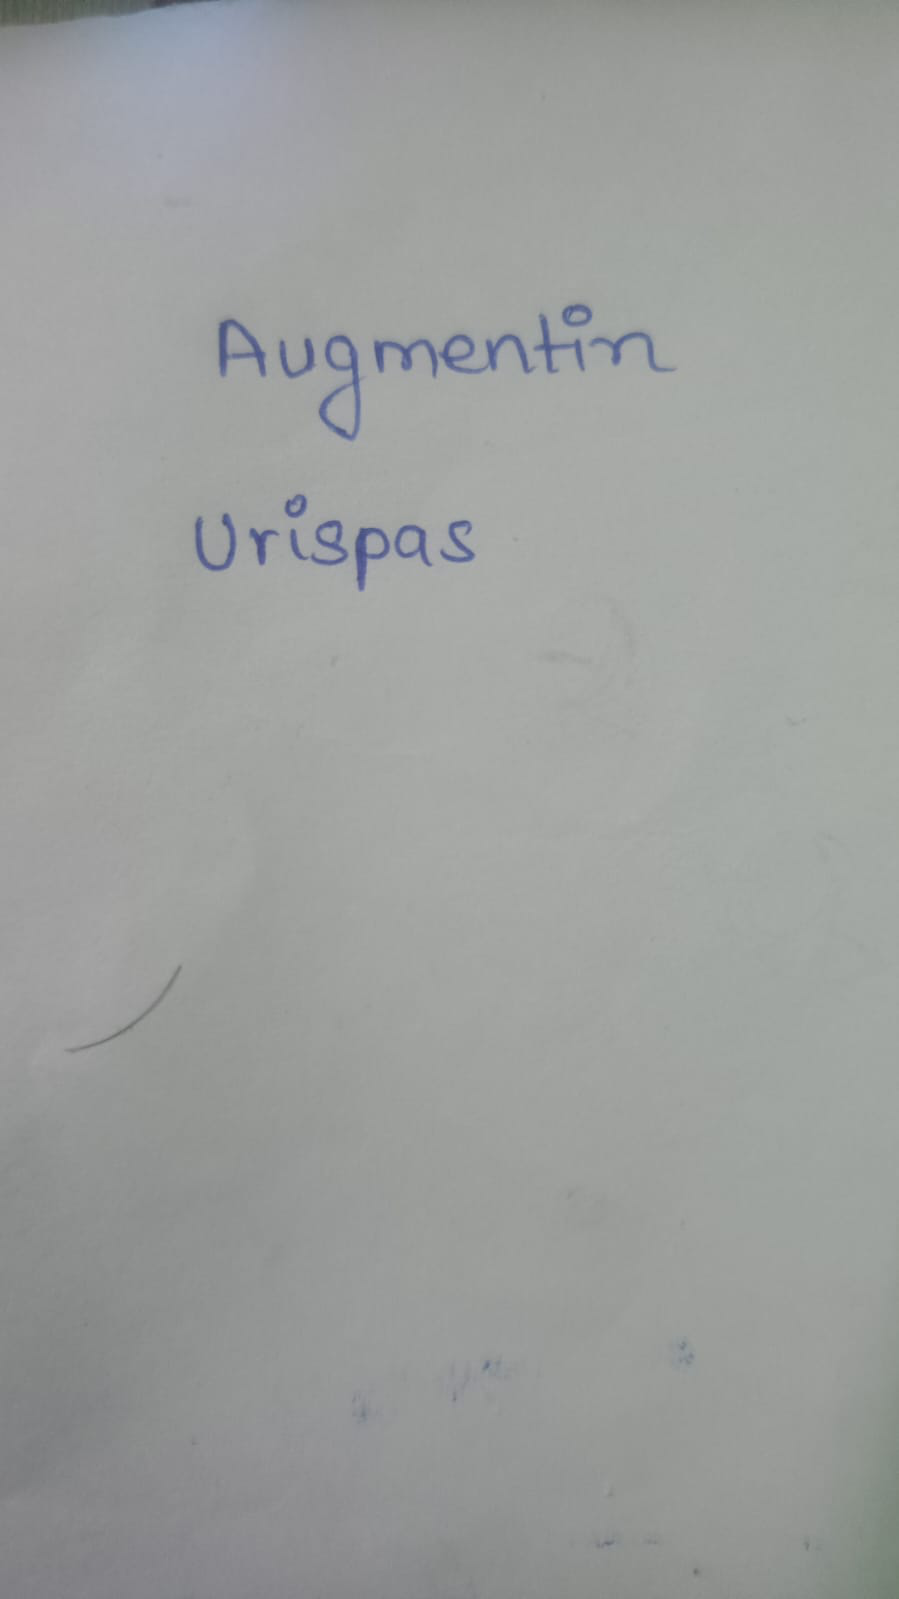 Augmentin
Urispas